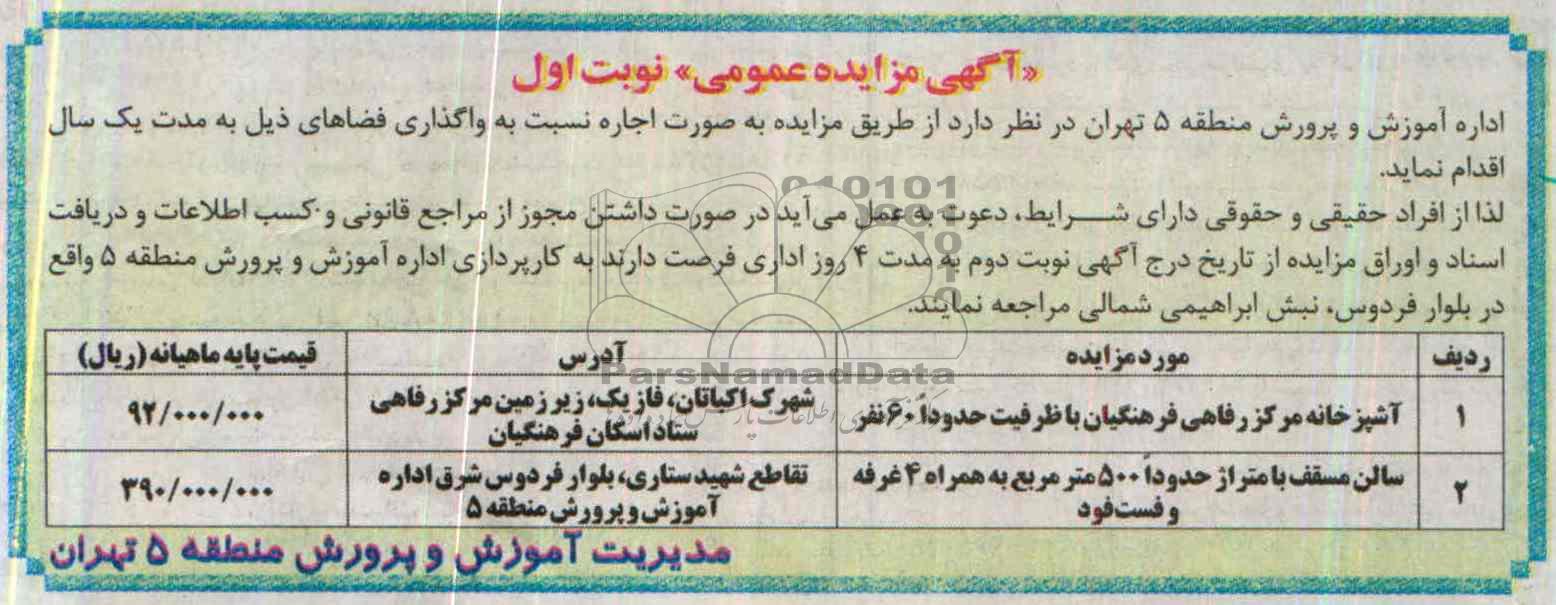 «آگهی مزایده عمومی» نوبت اول
اداره آموزش و پرورش منطقه ۵ تهران در نظر دارد از طریق مزایده به صورت اجاره نسبت به واگذاری فضاهای ذیل به مدت یک سال
اقدام نماید.
لذا از افراد حقیقی و حقوقی دارای شرایط، دعوت به عمل می‌آید در صورت داشتن مجوز از مراجع قانونی و کسب اطلاعات و دریافت
اسناد و اوراق مزایده از تاریخ درج آگهی نوبت دوم به مدت ۴ روز اداری فرصت دارند به کارپردازی اداره آموزش و پرورش منطقه ۵ واقع
در بلوار فردوس، نبش ابراهیمی شمالی مراجعه نمایند.
ردیف مورد مزایده آدرس قیمت پایه ماهیانه (ریال)
۱ آشپزخانه مرکز رفاهی فرهنگیان با ظرفیت حدوداً ۶۰ نفر شهرک اکباتان، فاز یک، زیر زمین مرکز رفاهی ۹۲/۰۰۰/۰۰۰
ستاد اسکان فرهنگیان
۲ سالن مسقف با متراژ حدوداً ۵۰۰ متر مربع به همراه ۴ غرفه تقاطع شهید ستاری، بلوار فردوس شرق اداره ۳۹۰/۰۰۰/۰۰۰
و فست فود آموزش و پرورش منطقه ۵
مدیریت آموزش و پرورش منطقه ۵ تهران
ParsNamadData